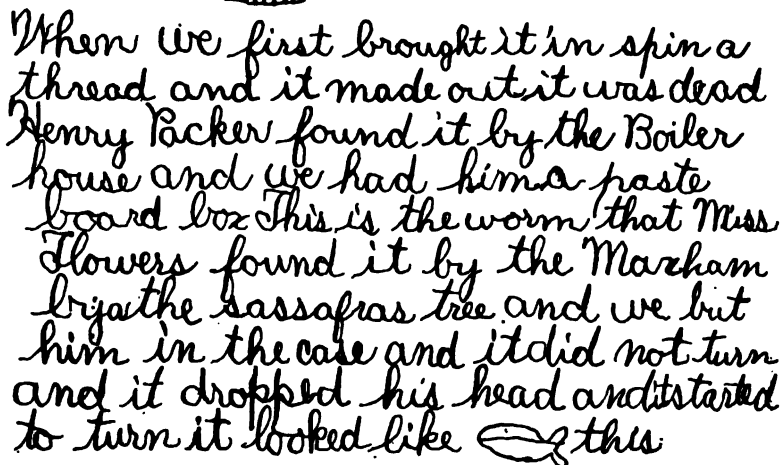 When we first brought it in spin a
thread and it made out it was dead
Henry Packer found it by the Boiler
house and we had him a paste
board box This is the worm that Miss.
Flowers found it by the Marham
by the sassafras tree and we but
him in the case and it did not turn
and it dropped his head and it started
to turn it looked like this.